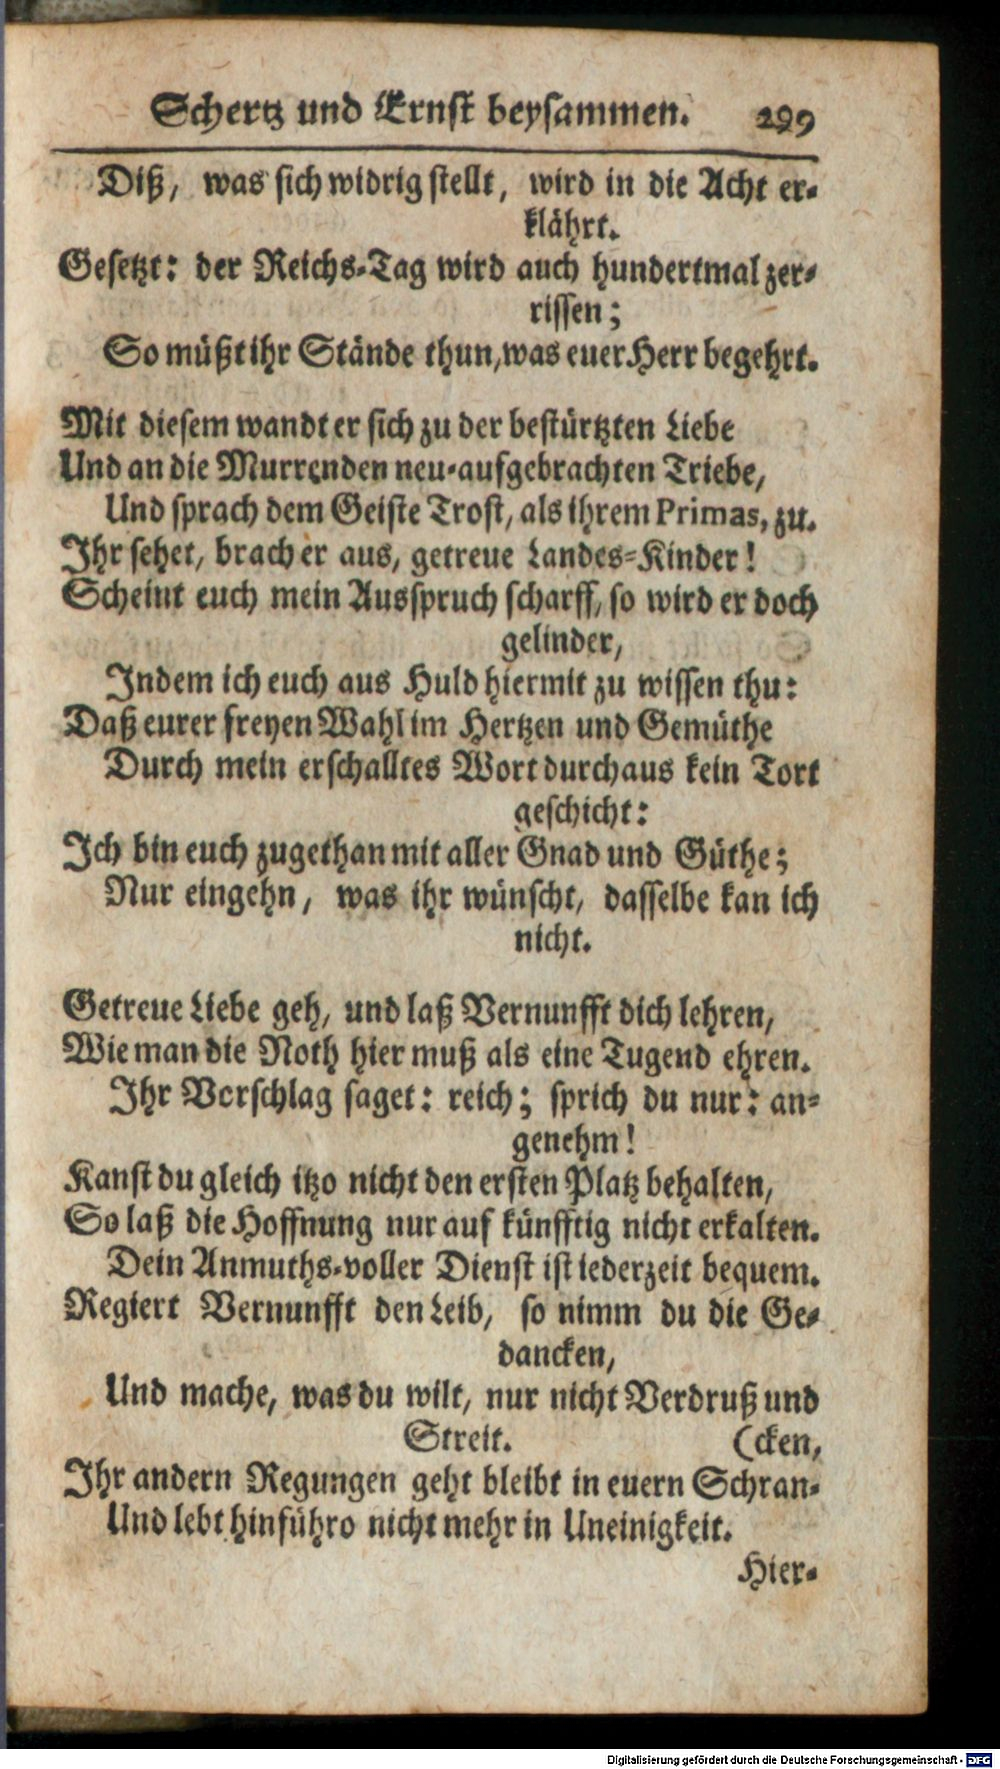 Schertz und Ernst beysammen. 299
Diß, was sich widrig stellt, wird in die Acht er-
klährt.
Gesetzt: der Reichs-Tag wird auch hundertmal zer-
rissen;
So müßt ihr Stände thun, was euer Herr begehrt.
Mit diesem wandt er sich zu der bestürtzten Liebe
Und an die Murrenden neu-aufgebrachten Triebe,
Und sprach dem Geiste Trost, als ihrem Primas, zu.
Ihr sehet, brach er aus, getreue Landes-Kinder!
Scheint euch mein Ausspruch scharff, so wird er doch
gelinder,
Indem ich euch aus Huld hiermit zu wissen thu:
Daß eurer freyen Wahl im Hertzen und Gemüthe
Durch mein erschalltes Wort durchaus kein Tort
geschicht:
Ich bin euch zugethan mit aller Gnad und Güthe;
Nur eingehn, was ihr wünscht, dasselbe kan ich
nicht.
Getreue Liebe geh, und laß Vernunfft dich lehren,
Wie man die Noth hier muß als eine Tugend ehren.
Ihr Vorschlag saget: reich; sprich du nur: an-
genehm!
Kanst du gleich itzo nicht den ersten Platz behalten,
So laß die Hoffnung nur auf künfftig nicht erkalten.
Dein Anmuths-voller Dienst ist iederzeit bequem.
Regiert Vernunfft den Leib, so nimm du die Ge-
dancken,
Und mache, was du wilt, nur nicht Verdruß und
Streit. (cken,
Ihr andern Regungen geht bleibt in euern Schran-
Und lebt hinführo nicht mehr in Uneinigkeit.
Hier-
Digitalisierung gefördert durch die Deutsche Forschungsgemeinschaft - DFG